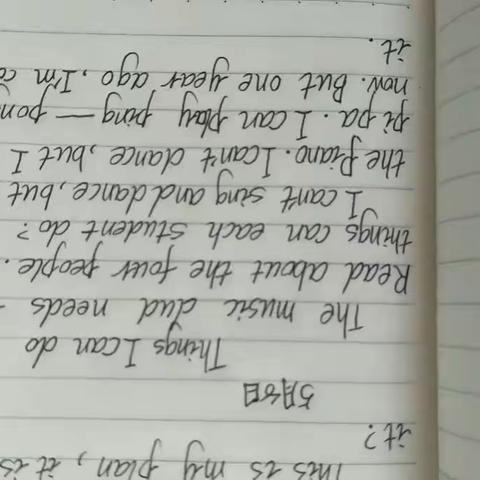 This is my plan, it is
it?
5月8日
Things I can do
The music dud needs
Read about the four people.
things can each student do?
I can't sing and dance, but
the piano. I can't dance, but I
pi pa. I can play ping —
now. But one year ago, I'm
it.